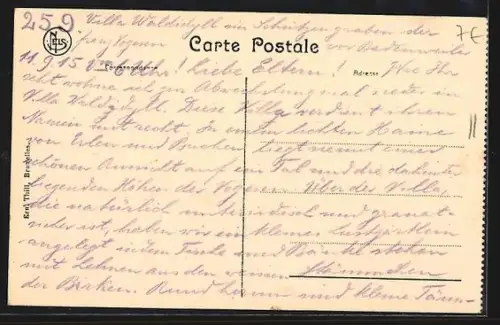 259.
Villa Waldidyll im Schützengraben der
7€
NELS
freu Vogesen vor Badonweiler
Carte Postale
11.9.15 Uhr! Liebe Eltern! Wie Ihr
Correspondance
Adresse
seht wohne ich zur Abwechslung mal wieder in
Villa Waldidyll. Diese Villa verdient ihren
Namen mit recht. In einem lichten Haine
von Erlen und Buchen liegt sie mit einer
schönen Aussicht auf ein Tal und die dahinter
liegenden Höhen der Vogesen. Über der Villa,
die natürlich unterirdisch und granat-
sicher ist, haben wir ein kleines Lustgärtlein
angelegt in dem Tische und Bänke stehen
mit Lehnen aus den weissen Stämmchen
der Birken. Rund herum sind kleine Tänn-
Ern. Thill, Bruxelles